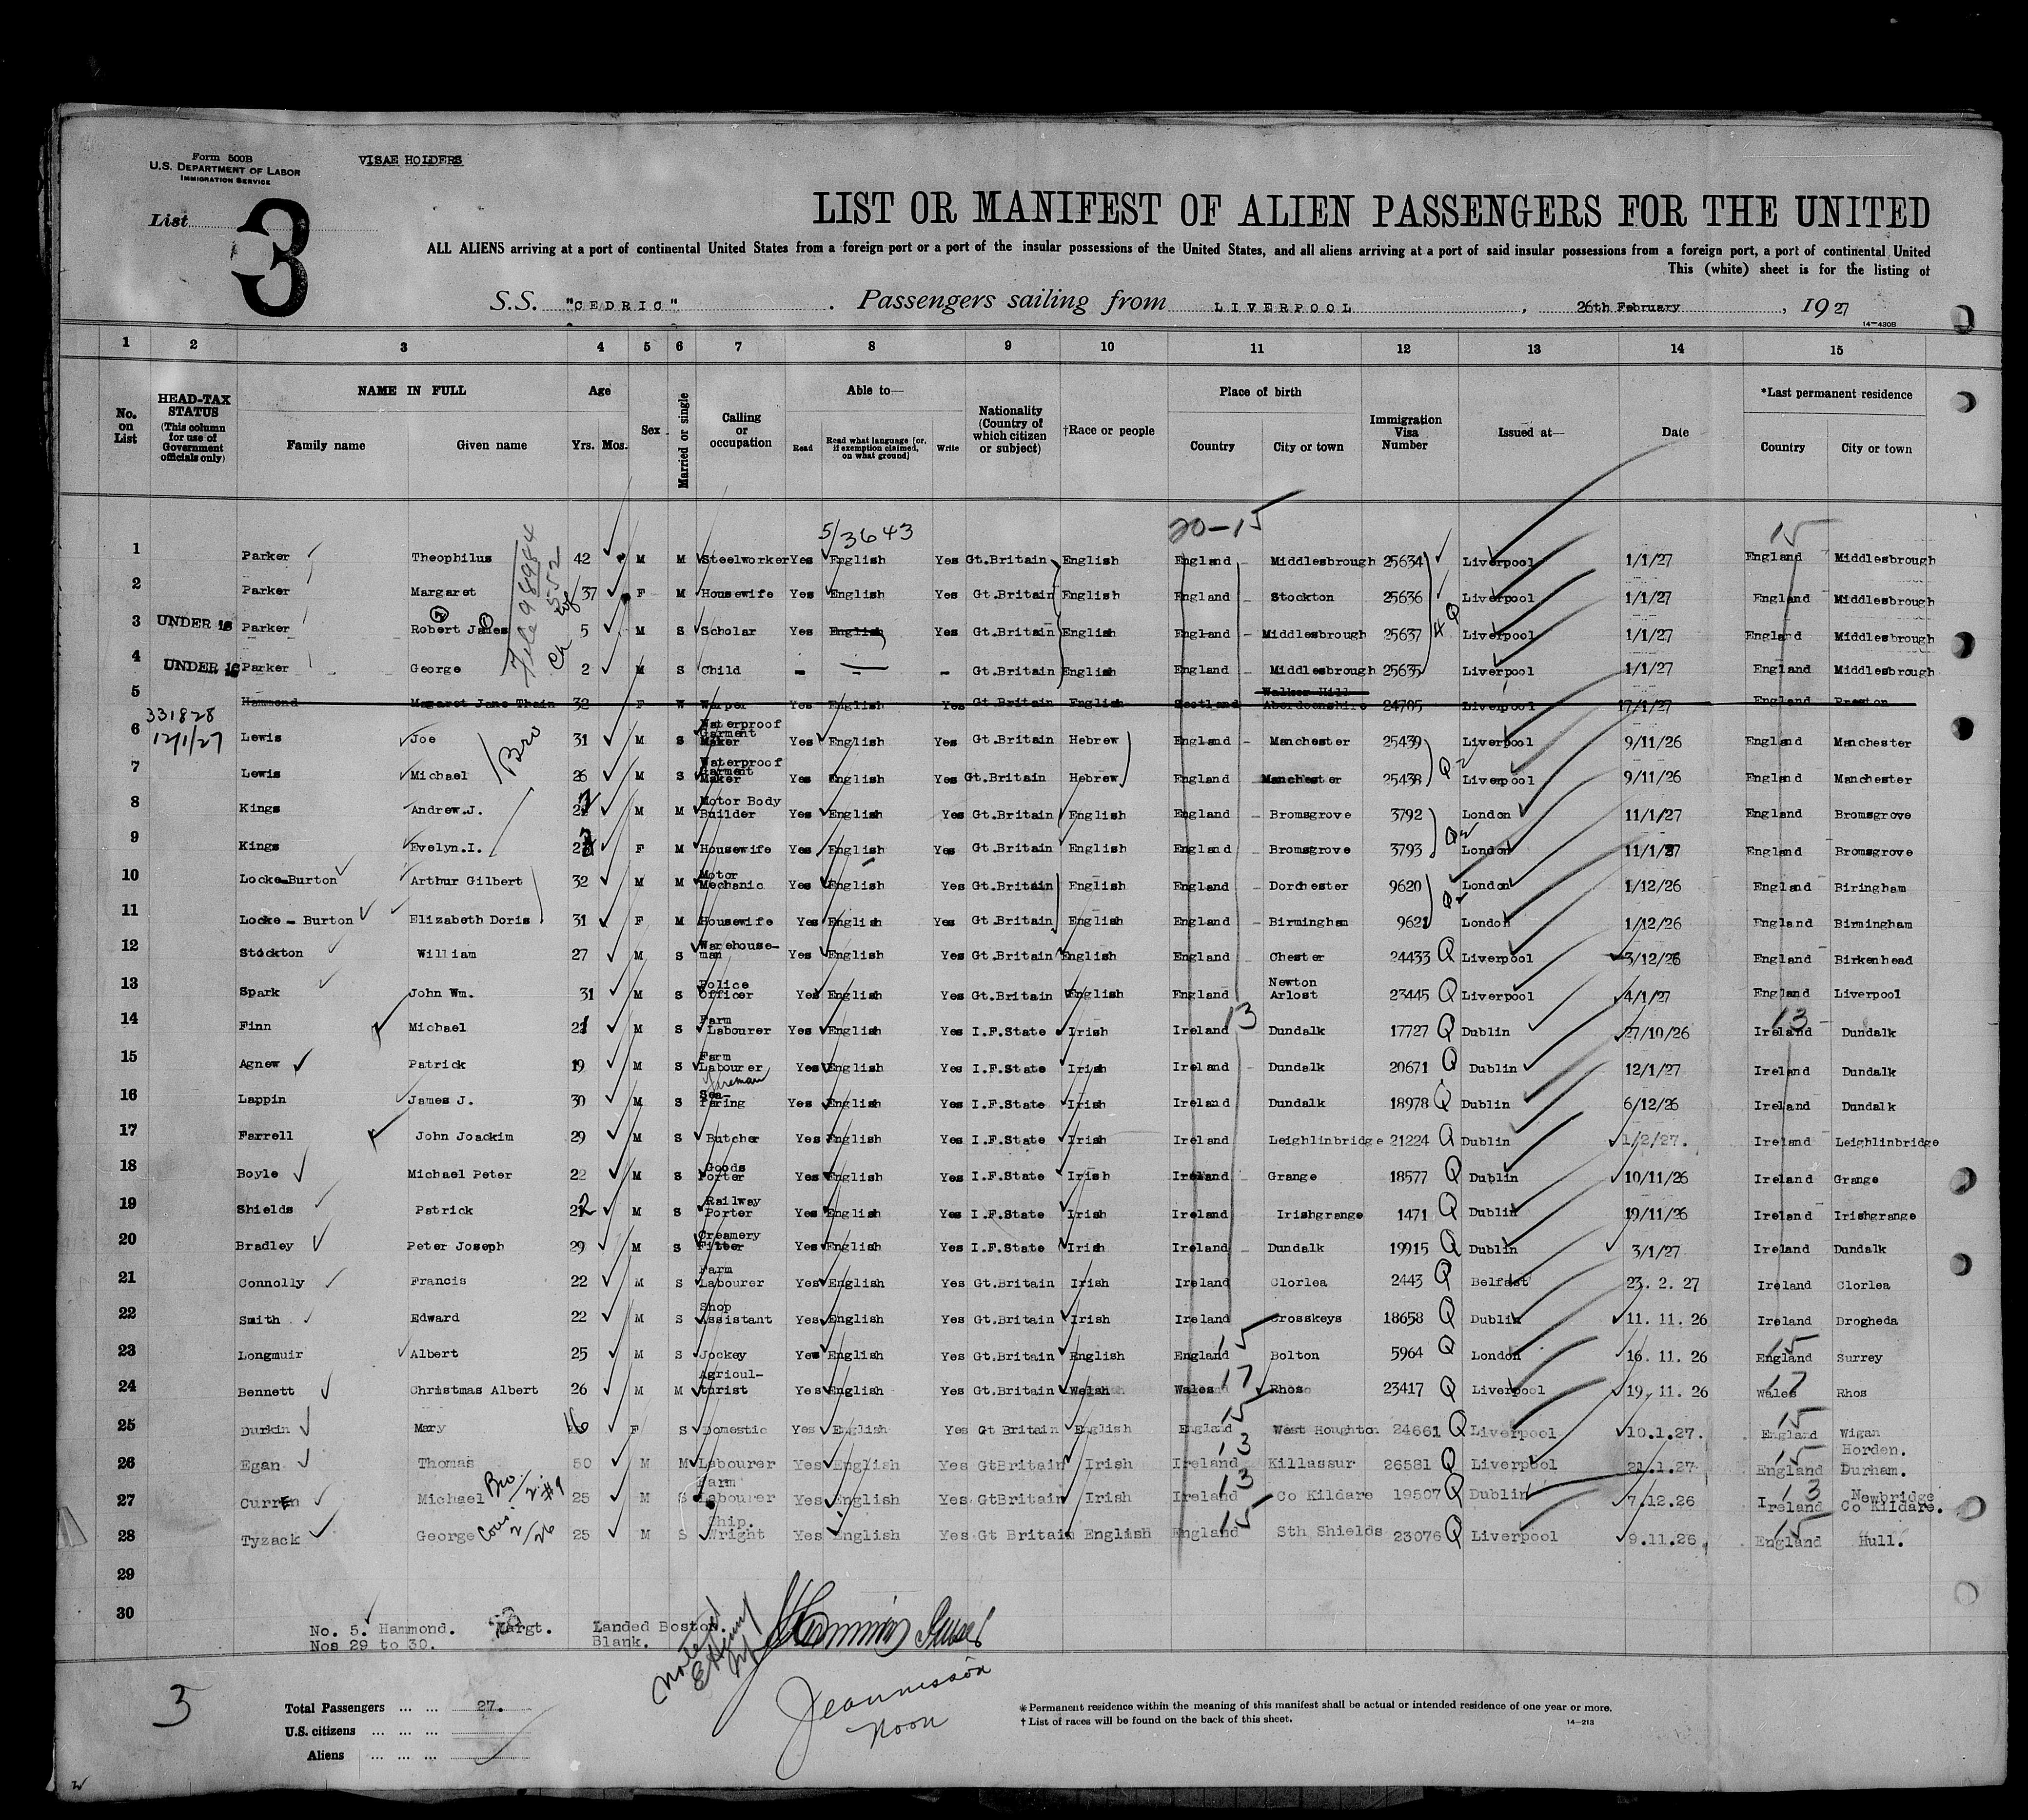 Form 500B
U.S. DEPARTMENT OF LABOR
IMMIGRATION SERVICE
VISAE HOLDERS
List 3
LIST OR MANIFEST OF ALIEN PASSENGERS FOR THE UNITED
ALL ALIENS arriving at a port of continental United States from a foreign port or a port of the insular possessions of the United States, and all aliens arriving at a port of said insular possessions from a foreign port, a port of continental United
This (white) sheet is for the listing of
S.S. "CEDRIC" . Passengers sailing from LIVERPOOL , 26th February , 1927
14-430B
1 2 3 4 5 6 7 8 9 10 11 12 13 14 15
No. on List
HEAD-TAX STATUS (This column for use of Government officials only)
NAME IN FULL
Family name Given name
Age
Yrs. Mos.
Sex
Married or single
Calling or occupation
Able to—
Read Read what language [or, if exemption claimed, on what ground] Write
Nationality (Country of which citizen or subject)
†Race or people
Place of birth
Country City or town
Immigration Visa Number
Issued at—
Date
*Last permanent residence
Country City or town
5/3643 20-15 15
File 98984
1 Parker Theophilus 42 M M Steelworker Yes English Yes Gt.Britain English England Middlesbrough 25634 Liverpool 1/1/27 England Middlesbrough
2 Parker Margaret 37 F M Housewife Yes English Yes Gt.Britain English England Stockton 25636 Liverpool 1/1/27 England Middlesbrough
3 UNDER 16 Parker Robert James 5 M S Scholar Yes English Yes Gt.Britain English England Middlesbrough 25637 Liverpool 1/1/27 England Middlesbrough
4 UNDER 16 Parker George 2 M S Child - - - Gt.Britain English England Middlesbrough 25635 Liverpool 1/1/27 England Middlesbrough
5 Hammond Magaret Jane Thain 32 F W Warper Yes English Yes Gt.Britain English Scotland Walker Hill Aberdeenshire 24705 Liverpool 17/1/27 England Preston
331828
12/1/27
6 Lewis Joe Bro 31 M S Waterproof Garment Maker Yes English Yes Gt.Britain Hebrew England Manchester 25439 Liverpool 9/11/26 England Manchester
7 Lewis Michael 26 M S Waterproof Garment Maker Yes English Yes Gt.Britain Hebrew England Manchester 25438 Liverpool 9/11/26 England Manchester
8 Kings Andrew.J. M M Motor Body Builder Yes English Yes Gt.Britain English England Bromsgrove 3792 London 11/1/27 England Bromsgrove
9 Kings Evelyn.I. F M Housewife Yes English Yes Gt.Britain English England Bromsgrove 3793 London 11/1/27 England Bromsgrove
10 Locke-Burton Arthur Gilbert 32 M M Motor Mechanic Yes English Yes Gt.Britain English England Dorchester 9620 London 1/12/26 England Biringham
11 Locke - Burton Elizabeth Doris 31 F M Housewife Yes English Yes Gt.Britain English England Birmingham 9621 London 1/12/26 England Birmingham
12 Stockton William 27 M S Warehouse-man Yes English Yes Gt.Britain English England Chester 24433 Q Liverpool 3/12/26 England Birkenhead
13 Spark John Wm. 31 M S Police Officer Yes English Yes Gt.Britain English England Newton Arlost 23445 Q Liverpool 4/1/27 England Liverpool
14 Finn Michael 21 M S Farm Labourer Yes English Yes I.F.State Irish Ireland 13 Dundalk 17727 Q Dublin 27/10/26 Ireland 13 Dundalk
15 Agnew Patrick 19 M S Farm Labourer Yes English Yes I.F.State Irish Ireland Dundalk 20671 Q Dublin 12/1/27 Ireland Dundalk
16 Lappin James J. 30 M S Fireman Sea-faring Yes English Yes I.F.State Irish Ireland Dundalk 18978 Q Dublin 6/12/26 Ireland Dundalk
17 Farrell John Joackim 29 M S Butcher Yes English Yes I.F.State Irish Ireland Leighlinbridge 21224 Q Dublin 1/2/27. Ireland Leighlinbridge
18 Boyle Michael Peter 22 M S Goods Porter Yes English Yes I.F.State Irish Ireland Grange 18577 Q Dublin 10/11/26 Ireland Grange
19 Shields Patrick 22 M S Railway Porter Yes English Yes I.F.State Irish Ireland Irishgrange 1471 Q Dublin 19/11/26 Ireland Irishgrange
20 Bradley Peter Joseph 29 M S Creamery Fitter Yes English Yes I.F.State Irish Ireland Dundalk 19915 Q Dublin 3/1/27 Ireland Dundalk
21 Connolly Francis 22 M S Farm Labourer Yes English Yes Gt.Britain Irish Ireland Clorlea 2443 Q Belfast 23. 2. 27 Ireland Clorlea
22 Smith Edward 22 M S Shop Assistant Yes English Yes Gt.Britain Irish Ireland Crosskeys 18658 Q Dublin 11. 11. 26 Ireland Drogheda
23 Longmuir Albert 25 M S Jockey Yes English Yes Gt.Britain English England 15 Bolton 5964 Q London 16. 11. 26 England 15 Surrey
24 Bennett Christmas Albert 26 M M Agricul-turist Yes English Yes Gt.Britain Welsh Wales 17 Rhos 23417 Q Liverpool 19. 11. 26 Wales 17 Rhos
25 Durkin Mary 16 F S Domestic Yes English Yes Gt Britain English England 15 West Houghton 24661 Q Liverpool 10.1.27. England 15 Wigan
26 Egan Thomas 50 M M Labourer Yes English Yes GtBritain Irish Ireland 13 Killassur 26581 Q Liverpool 21.1.27 England 15 Horden. Durham.
27 Curren Michael Bro 25 M S Farm Labourer Yes English Yes GtBritain Irish Ireland 13 Co Kildare 19507 Q Dublin 7.12.26 Ireland 13 Newbridge Co Kildare.
28 Tyzack George Cous 2/26 25 M S Ship. Wright Yes English Yes Gt Britain English England 15 Sth Shields 23076 Q Liverpool 9.11.26. England 15 Hull.
29
30
No. 5. Hammond. Margt. Landed Boston.
Nos 29 to 30. Blank.
Noted
Jeannisson
Noon
3
Total Passengers ... ... 27.
U.S. citizens ... ... ...
Aliens ... ... ...
* Permanent residence within the meaning of this manifest shall be actual or intended residence of one year or more.
† List of races will be found on the back of this sheet.
14-213